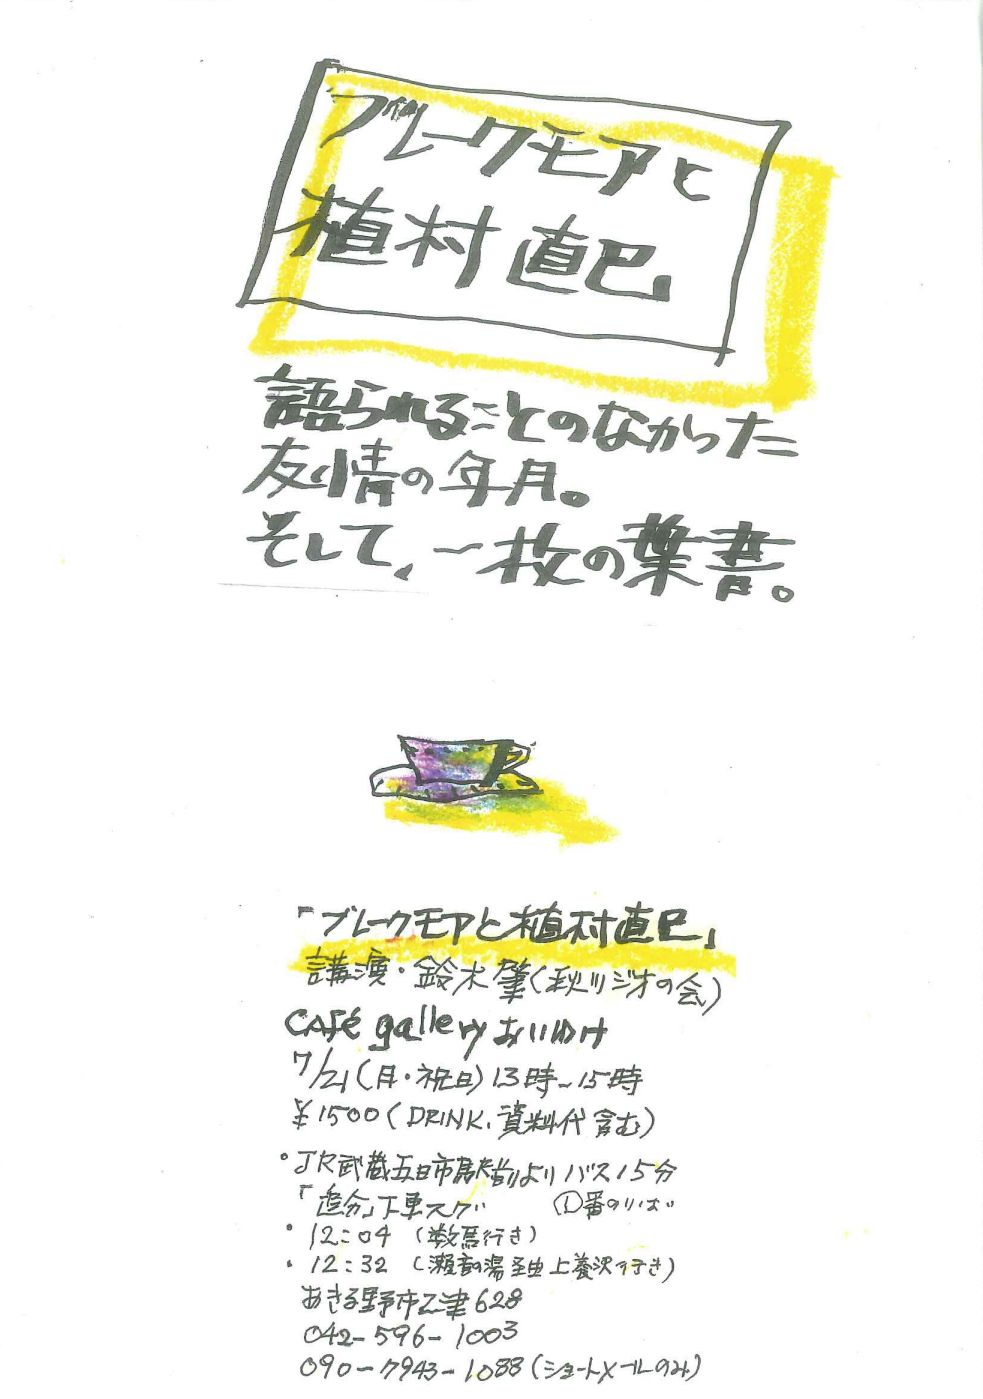 ブレークモアと
植村直巳
語られることのなかった
友情の年月。
そして、一枚の葉書。
「ブレークモアと植村直巳」
講演・鈴木肇(秋川ジオの会)
café gallery おいゆけ
7/21(月・祝日)13時~15時
¥1500(DRINK、資料代含む)
・JR武蔵五日市駅前よりバス15分
「追分」下車スグ ①番のりば
・12:04 (数馬行き)
・12:32 (瀬音の湯経由上養沢行き)
あきる野市乙津628
042-596-1003
090-7943-1088(ショートメールのみ)